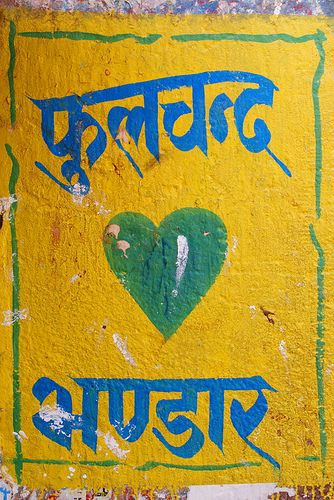 फूलचन्द
भण्डार